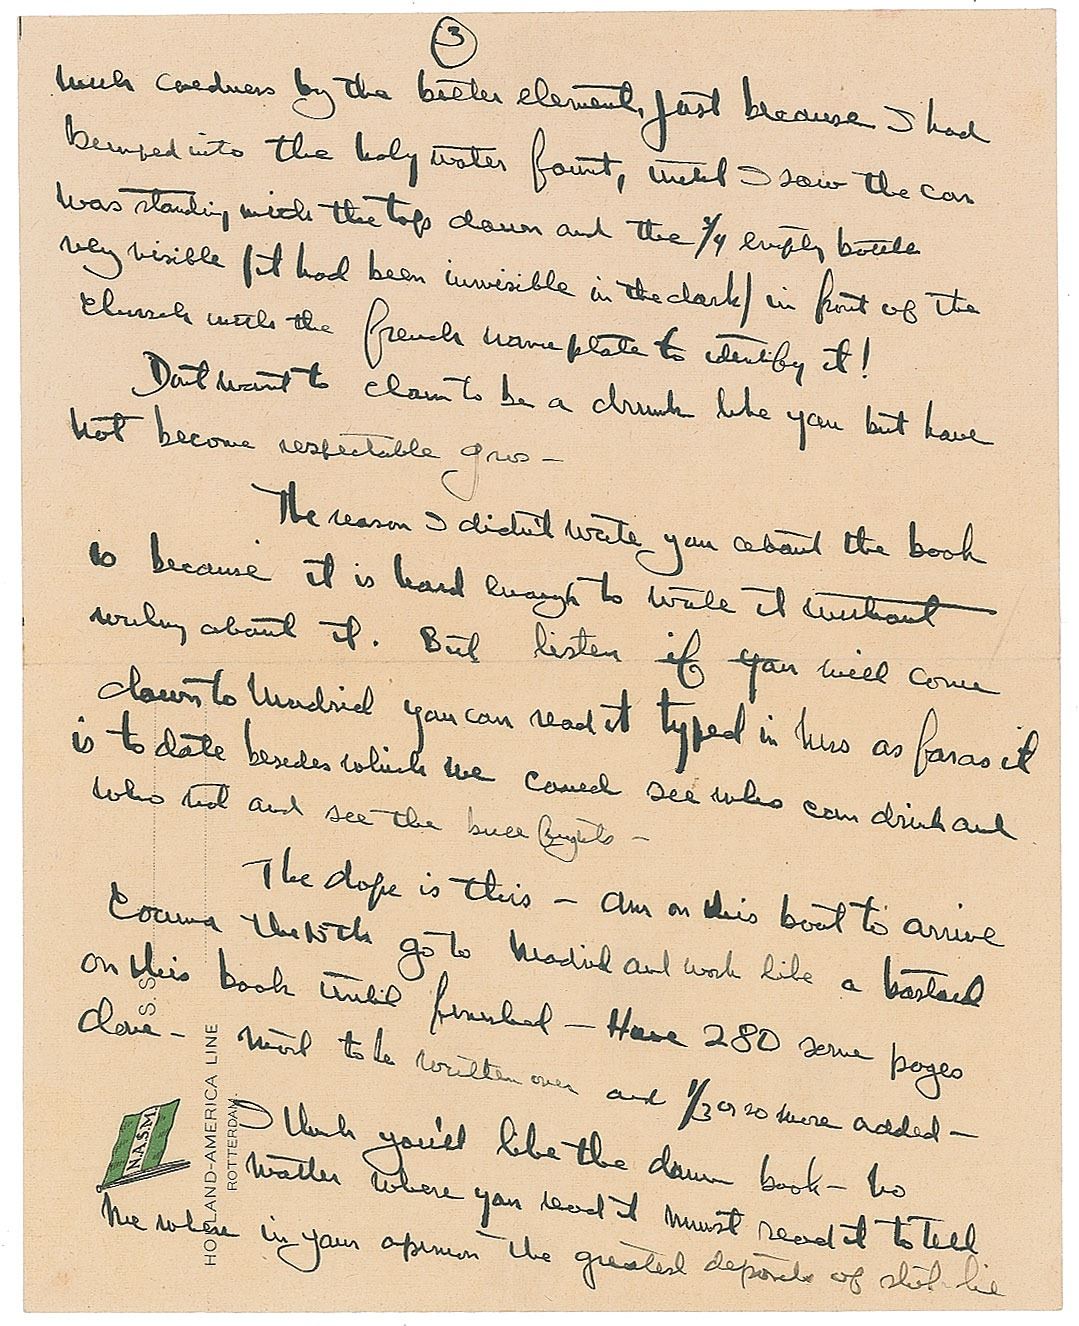 3
much coedness by the better element, just because I had
bumped into the holy water fount, until I saw the car
was standing with the top down and the 3/4 empty bottle
very visible (it had been invisible in the dark) in front of the
church with the french name plate to identify it!
Dont want to claim to be a drunk like you but have
not become respectable
The reason I didn't write you about the book
is because it is hard enough to write it without
writing about it. But listen if you will come
down to Madrid you can read it typed in mss as far as it
is to date besides which we could see who can drink and
who not and see the bull fights —
The dope is this — am on this boat to arrive
Coruna the 10th go to Madrid and work like a bastard
on this book until finished — Have 280 some pages
done — most to be written over and 1/3 or so more added —
I think you'd like the damn book — no
matter where you read it must read it to tell
me where in your opinion the greatest deposits of shit lie
S.S.
HOLLAND-AMERICA LINE
ROTTERDAM.
N.A.S.M.